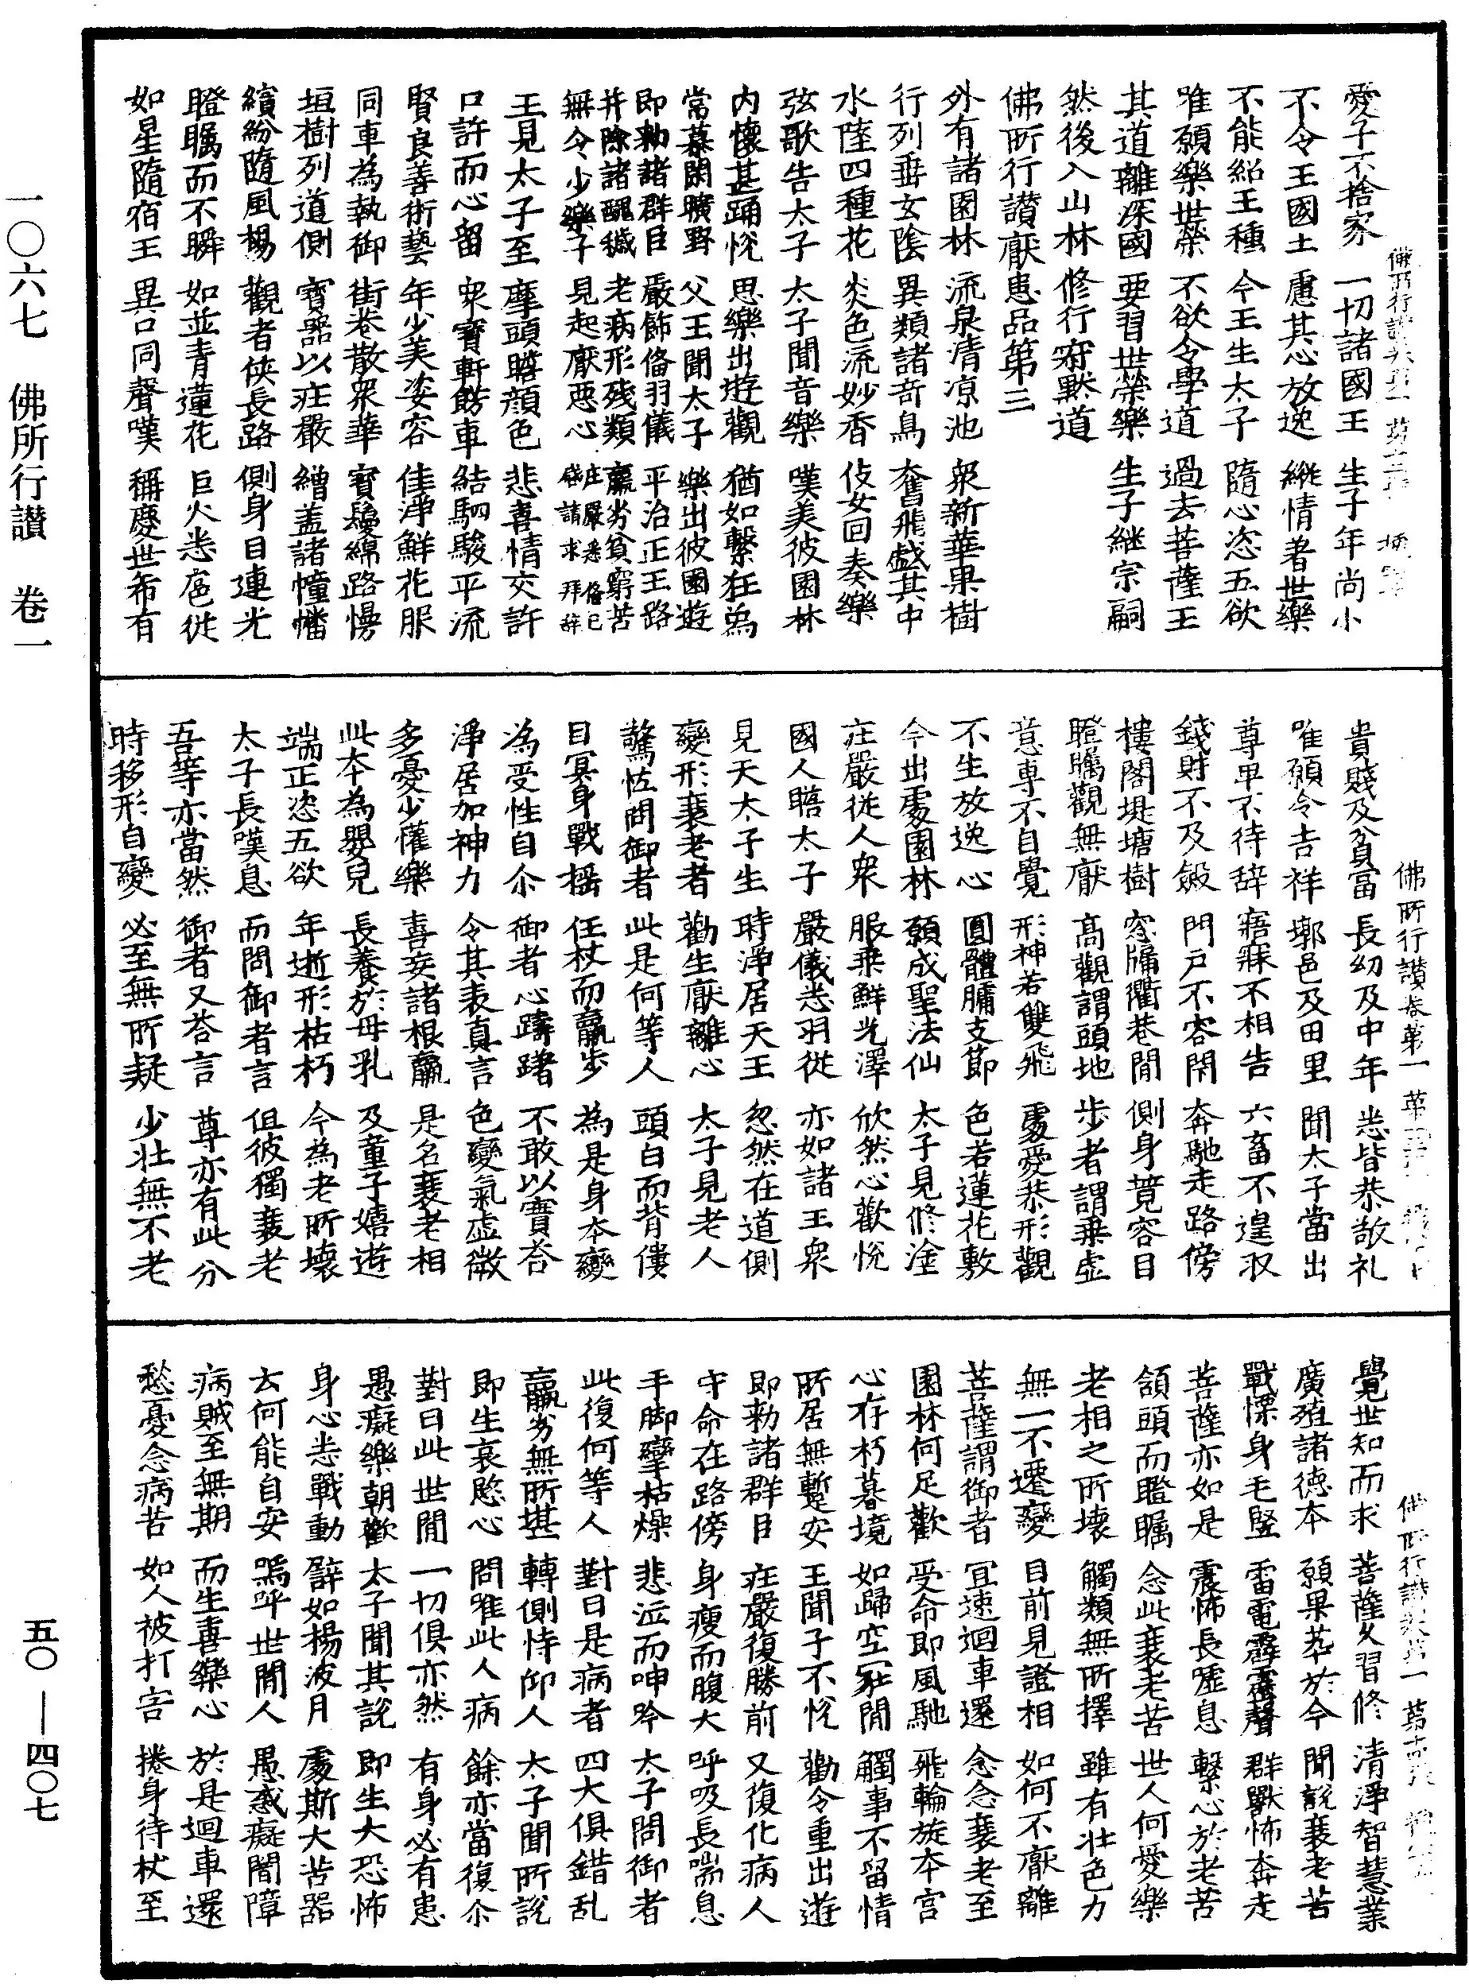 一〇六七　佛所行讃　卷一
五〇—四〇七
愛子不捨家　一切諸國王　生子年尚小
不令王國土　慮其心放逸　縱情著世樂
不能紹王種　今王生太子　隨心恣五欲
唯願樂世榮　不欲令學道　過去菩薩王
其道雖深國　要習世榮樂　生子継宗嗣
然後入山林　修行寂默道
佛所行讃厭患品第三
外有諸園林　流泉清凉池　衆新華果樹
行列垂玄陰　異類諸奇鳥　奮飛戲其中
水陸四種花　炎色流妙香　伎女回奏樂
弦歌告太子　太子聞音樂　嘆美彼園林
内懷甚踊恱　思樂出遊觀　猶如繫狂象
常慕閑曠野　父王聞太子　樂出彼園遊
即勑諸群臣　嚴飾俻羽儀　平治正王路
并除諸醜穢　老病形残類　羸劣貧窮苦
無令少樂子　見起厭惡心　庄嚴悉俻已　啓請求拜辞
王見太子至　摩頭瞻顔色　悲喜情交許
口許而心留　衆寳軒飾車　結駟駿平流
賢良善術藝　年少美姿容　佳淨鮮花服
同車為執御　街巷散衆華　寳縵綿路㥬
垣樹列道側　寳器以莊嚴　繒盖諸幢幡
繽紛隨風楊　觀者俠長路　側身目連光
瞪矚而不瞬　如並青蓮花　臣火悉扈従
如星隨宿王　異口同聲嘆　稱慶世希有
佛所行讃卷第一
貴賤及貧富　長幼及中年　悉皆恭敬礼
唯願令吉祥　郭邑及田里　聞太子當出
尊早不待辞　寤寐不相告　六畜不遑収
錢財不及斂　門戸不容閇　奔馳走路傍
樓閣堤塘樹　窓牖衢巷間　側身競容目
瞪矚觀無厭　高觀謂頭地　步者謂乗虛
意専不自覺　形神若雙飛　䖍䖍恭形觀
不生放逸心　圓體𦟛支節　色若蓮花敷
今出處園林　願成聖法仙　太子見修塗
庄嚴従人衆　服乗鮮光澤　欣然心歡恱
國人瞻太子　嚴儀悉羽従　亦如諸王衆
見天太子生　時淨居天王　忽然在道側
變形衰老者　勸生厭離心　太子見老人
驚怪問御者　此是何等人　頭白而背僂
目冥身戰摇　任杖而羸步　為是身卒變
為受性自尒　御者心躊躇　不敢以實荅
淨居加神力　令其表真言　色變氣虛微
多憂少懽樂　喜妄諸根羸　是名衰老相
此夲為嬰兒　長養於母乳　及童子嬉遊
端正恣五欲　年逝形枯朽　今為老所壊
太子長嘆息　而問御者言　但彼獨衰老
吾等亦當然　御者又荅言　尊亦有此分
時移形自變　必至無所疑　少壮無不老
佛所行讃卷第一
覺世知而求　菩薩久習修　清淨智慧業
廣殖諸德本　願果莘於今　聞説衰老苦
戰慄身毛竪　雷電霹靂聲　群獸怖奔走
菩薩亦如是　震怖長嘘息　繫心於老苦
頷頭而瞪矚　念此衰老苦　世人何愛樂
老相之所壊　觸類無所擇　雖有壮色力
無一不遷變　目前見證相　如何不厭離
菩薩謂御者　宜速迴車還　念念衰老至
園林何足歡　受命即風馳　飛輪旋本宫
心存朽暮境　如歸空冢間　觸事不留情
所居無蹔安　王聞子不恱　勸令重出遊
即勑諸群臣　庄嚴復勝前　又復化病人
守命在路傍　身瘦而腹大　呼吸長喘息
手脚攣枯燥　悲泣而呻吟　太子問御者
此復何等人　對曰是病者　四大俱錯乱
羸劣無所堪　轉側恃仰人　太子聞所説
即生哀愍心　問唯此人病　餘亦當復尒
對曰此世間　一切俱亦然　有身必有患
愚癡樂朝歡　太子聞其説　即生大恐怖
身心悉戰動　譬如楊波月　處斯大苦器
云何能自安　嗚呼世間人　愚惑癡闇障
病賊至無期　而生喜樂心　於是迴車還
愁憂念病苦　如人被打害　捲身待杖至